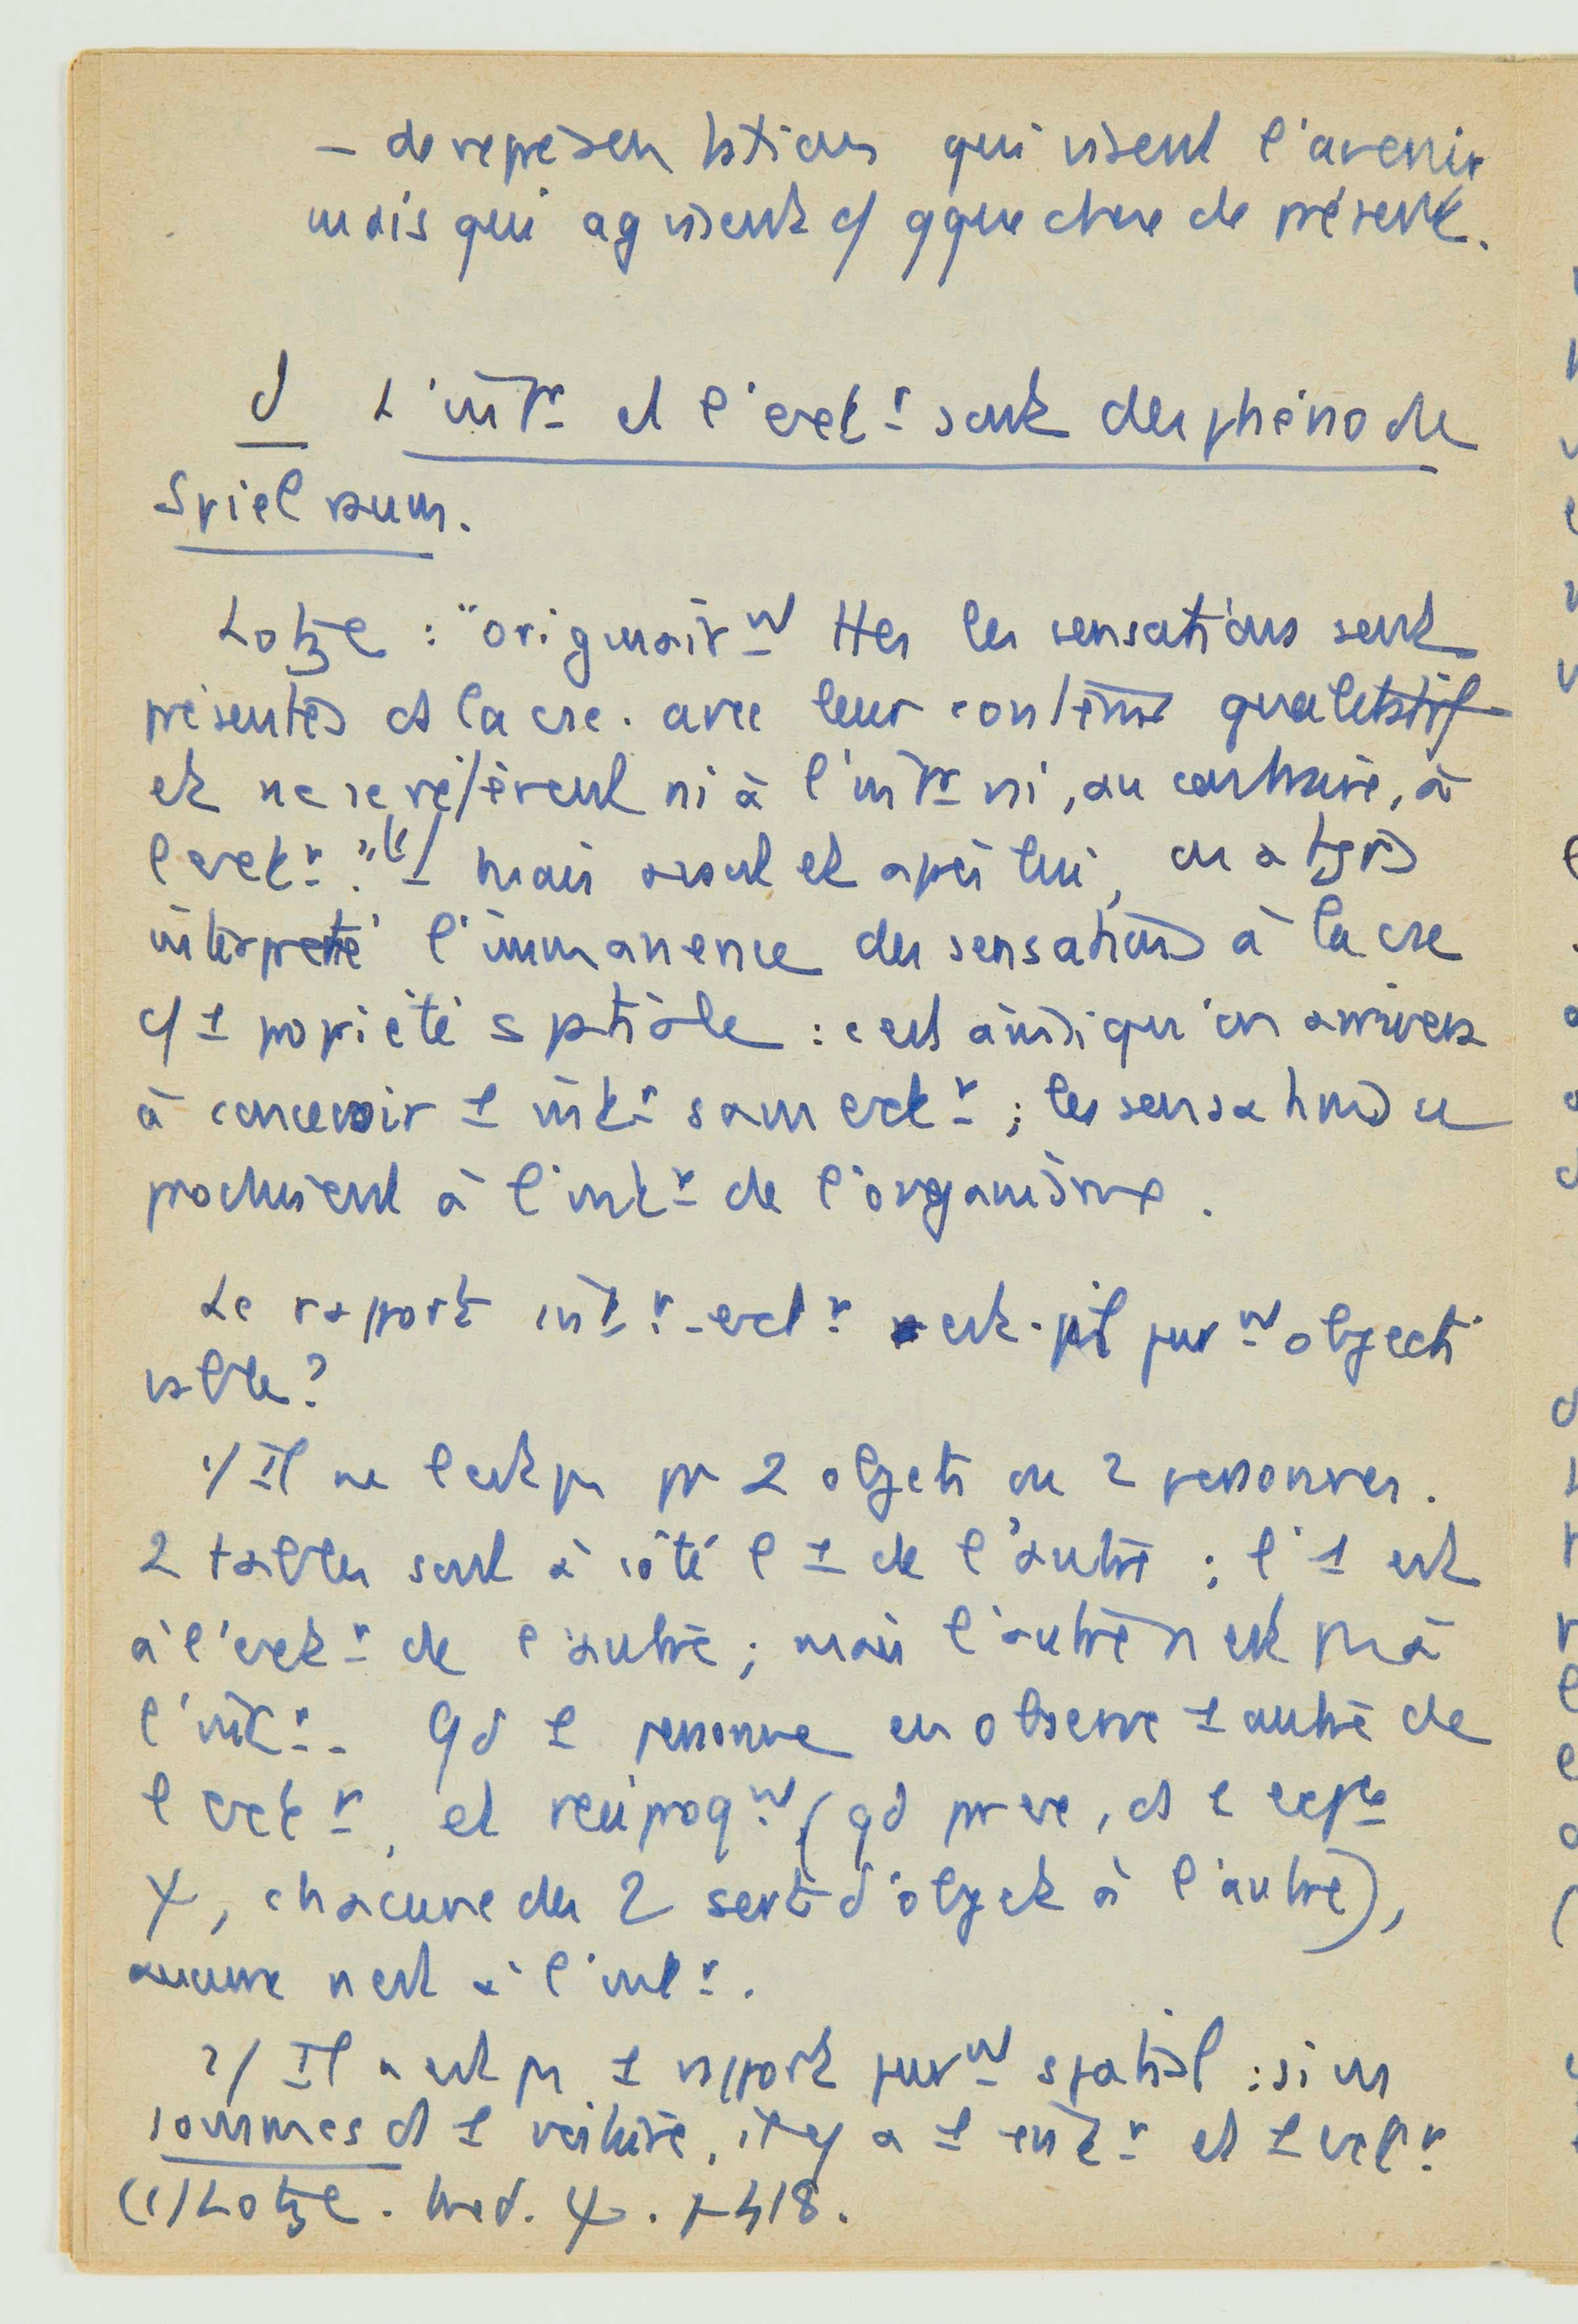 – de représentations qui visent l'avenir
mais qui agissent c/ qque chose de présent.
d L'intr et l'extr sont des phéno de
Spielraum.
Lotze : "originairmt ttes les sensations sont
présentes ds la csc. avec leur contenu qualitatif
et ne se réfèrent ni à l'intr ni, au contraire, à
l'extr." (1) Mais avant et après lui, on a tjrs
interprété l'immanence des sensations à la csc
c/ 1 propriété sptiale : c'est ainsi qu'on arrivera
à concevoir 1 intr sans extr ; les sensations se
produisent à l'intr de l'organisme.
Le rapport intr-extr est-il purmt objecti
vable ?
1/ Il ne l'est pas pr 2 objets ou 2 personnes.
2 tables sont à côté l'1 de l'autre ; l'1 est
à l'extr de l'autre ; mais l'autre n'est pas à
l'intr. Qd 1 personne en observe 1 autre de
l'extr, et réciproqmt (qd pr ex, ds 1 expce
ψ, chacune des 2 sert d'objet à l'autre),
aucune n'est à l'intr.
2/ Il n'est pas 1 rapport purmt spatial : si ns
sommes ds 1 voiture, il y a 1 intr et 1 extr
(1) Lotze. Med. ψ. p 418.